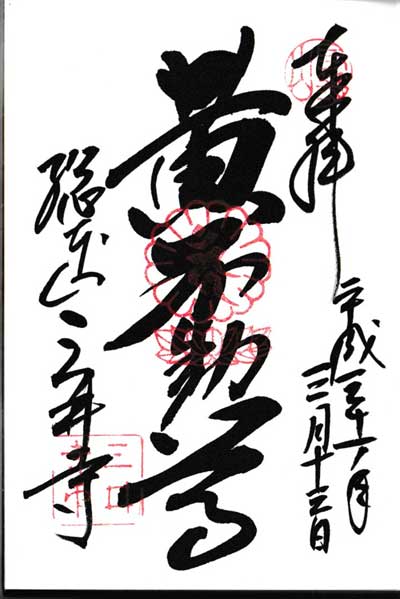 奉拝
平成三十一年
三月十三日
黄不動尊
総本山三井寺